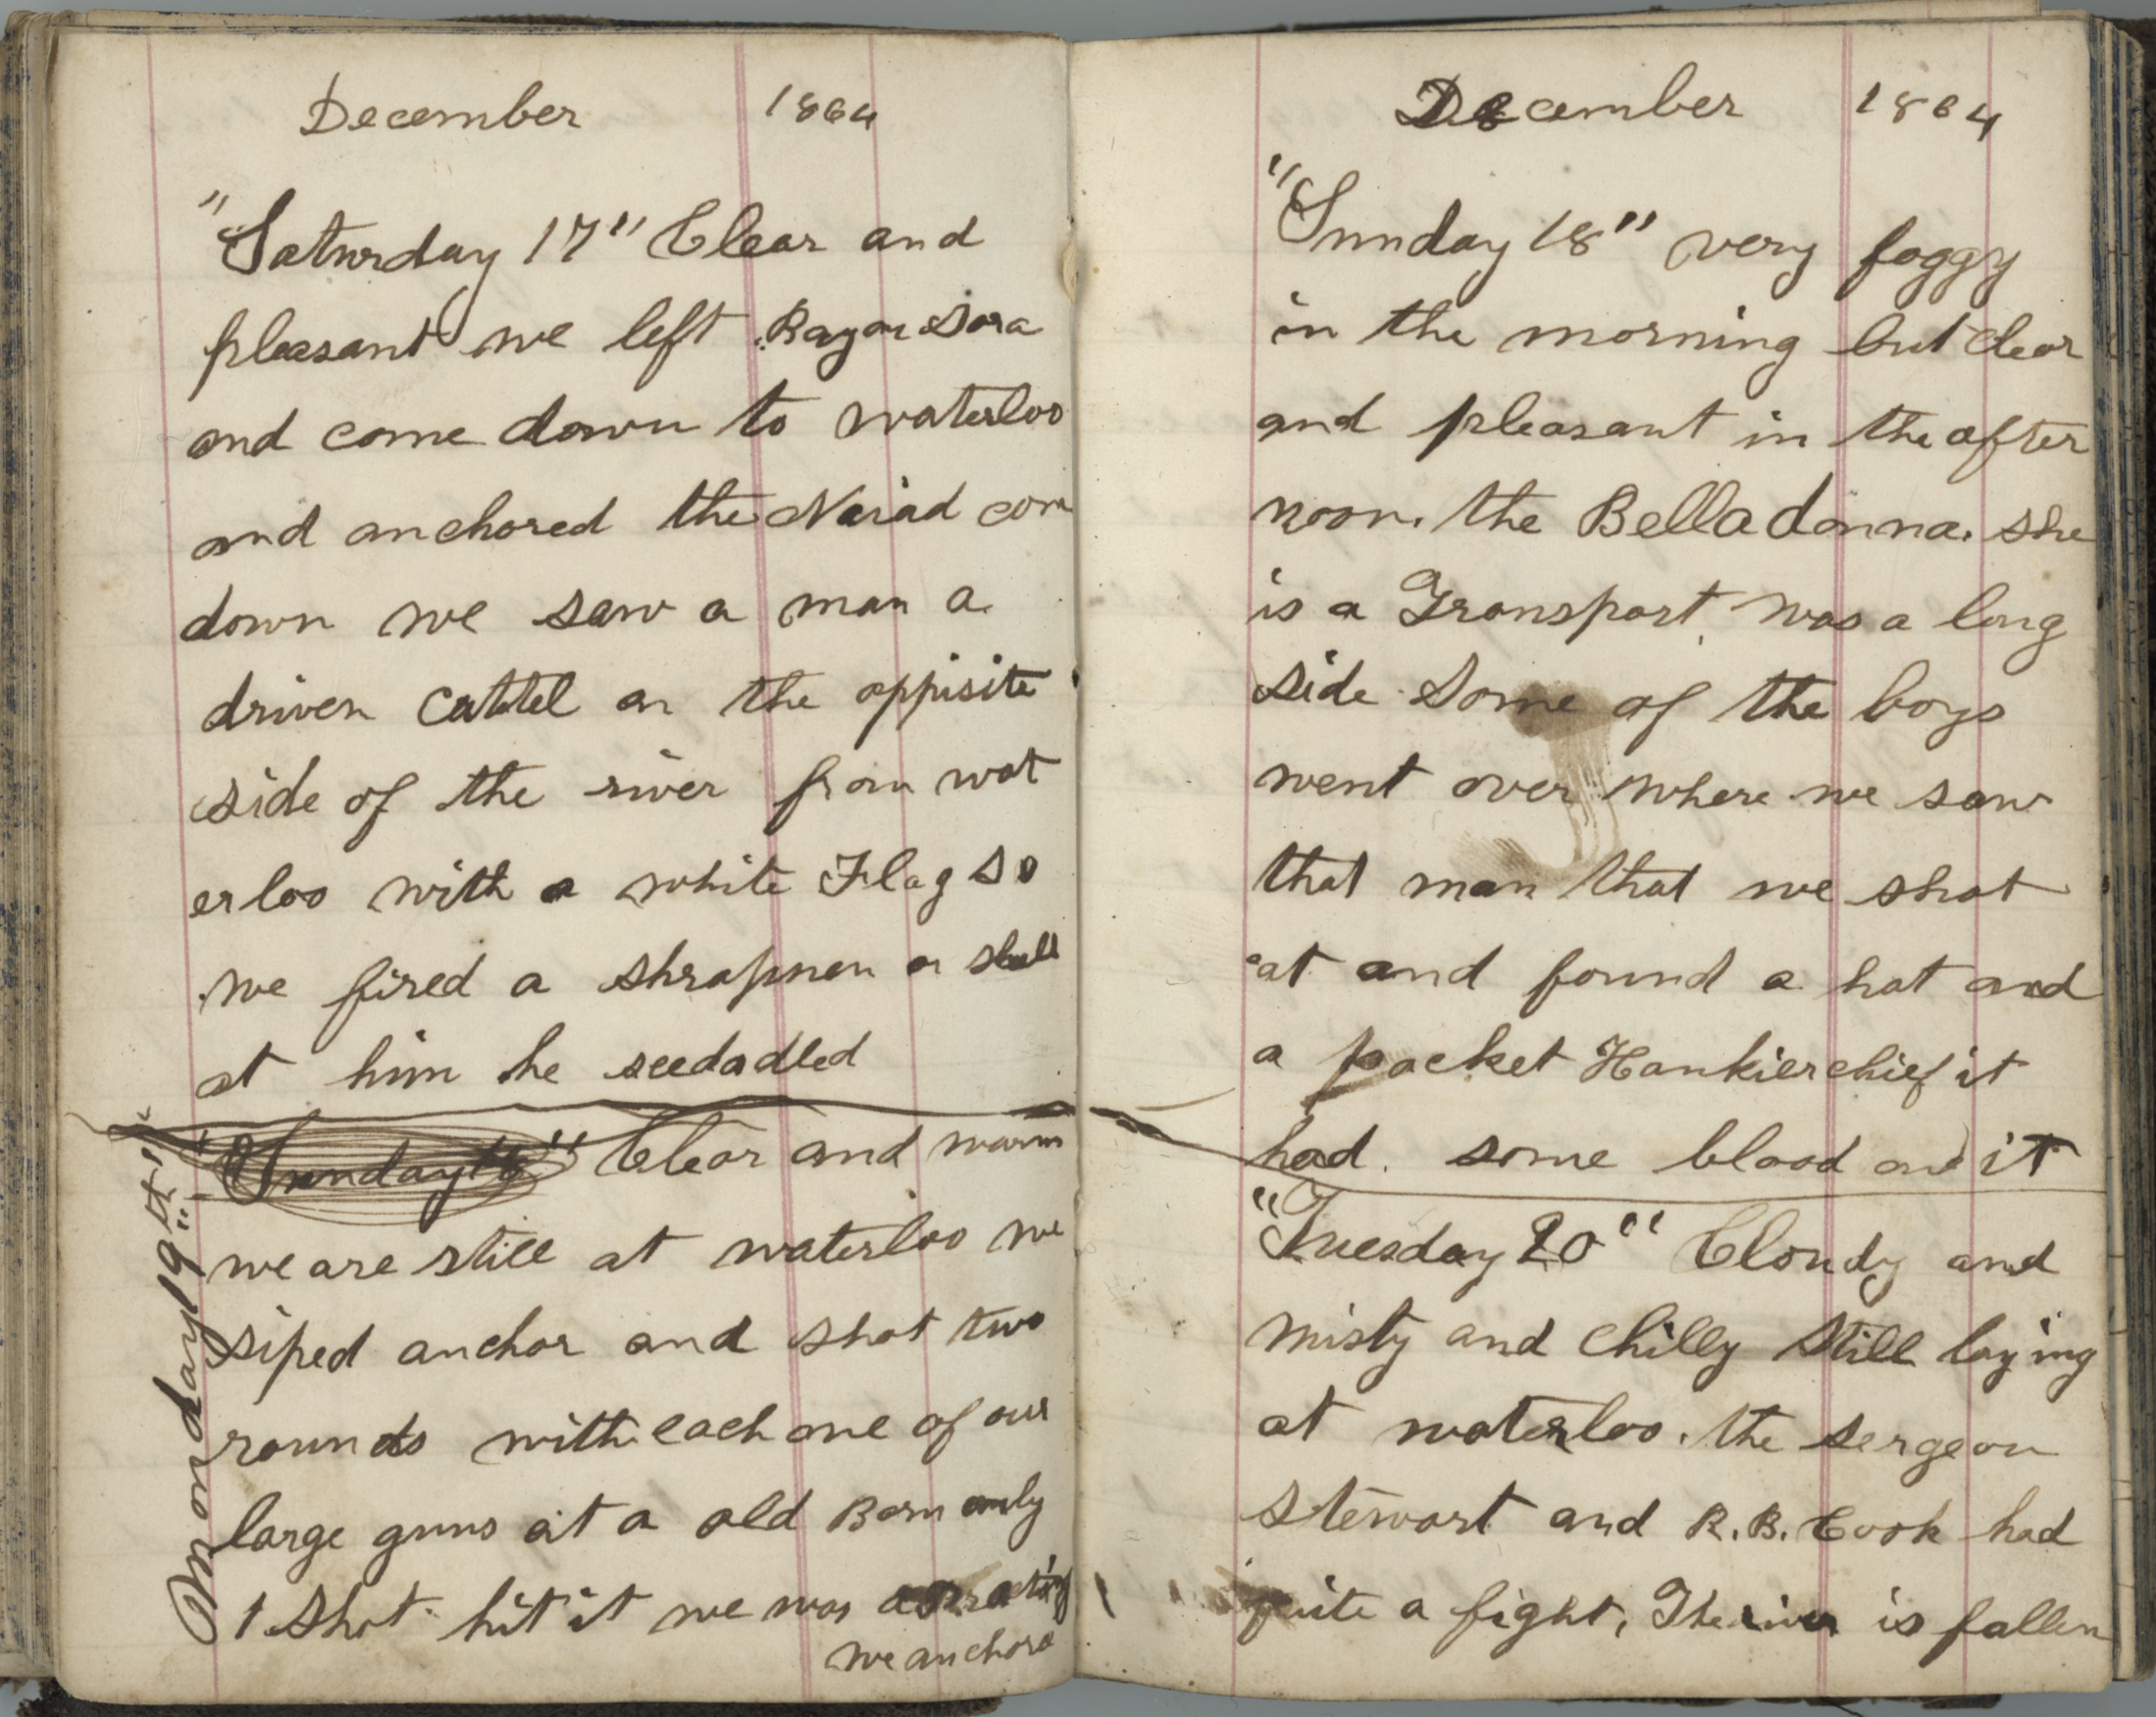 December 1864
"Saturday 17" Clear and
pleasant we left Bayou Sara
and come down to waterloo
and anchored the Naiad com
down we saw a man a
driven cattel on the oppisite
side of the river from wat
erloo with a white Flag so
we fired a shrapnen or shell
at him he scedadled
"Sunday 18" Clear and warm
Monday 19th"
we are still at waterloo we
siped anchor and shot two
rounds with each one of our
large guns at a old Barn only
1 shot hit it we was
we anchord
December 1864
"Sunday 18" very foggy
in the morning but clear
and pleasant in the after
noon. the Belladonna. she
is a Transport was a long
side some of the boys
went over where we saw
that man that we shot
at and found a hat and
a pocket Hankierchief it
had. some blood on it
"Tuesday 20" Cloudy and
misty and chilly still laying
at waterloo. the sergeon
stewart and R. B. Cook had
quite a fight, The river is fallen